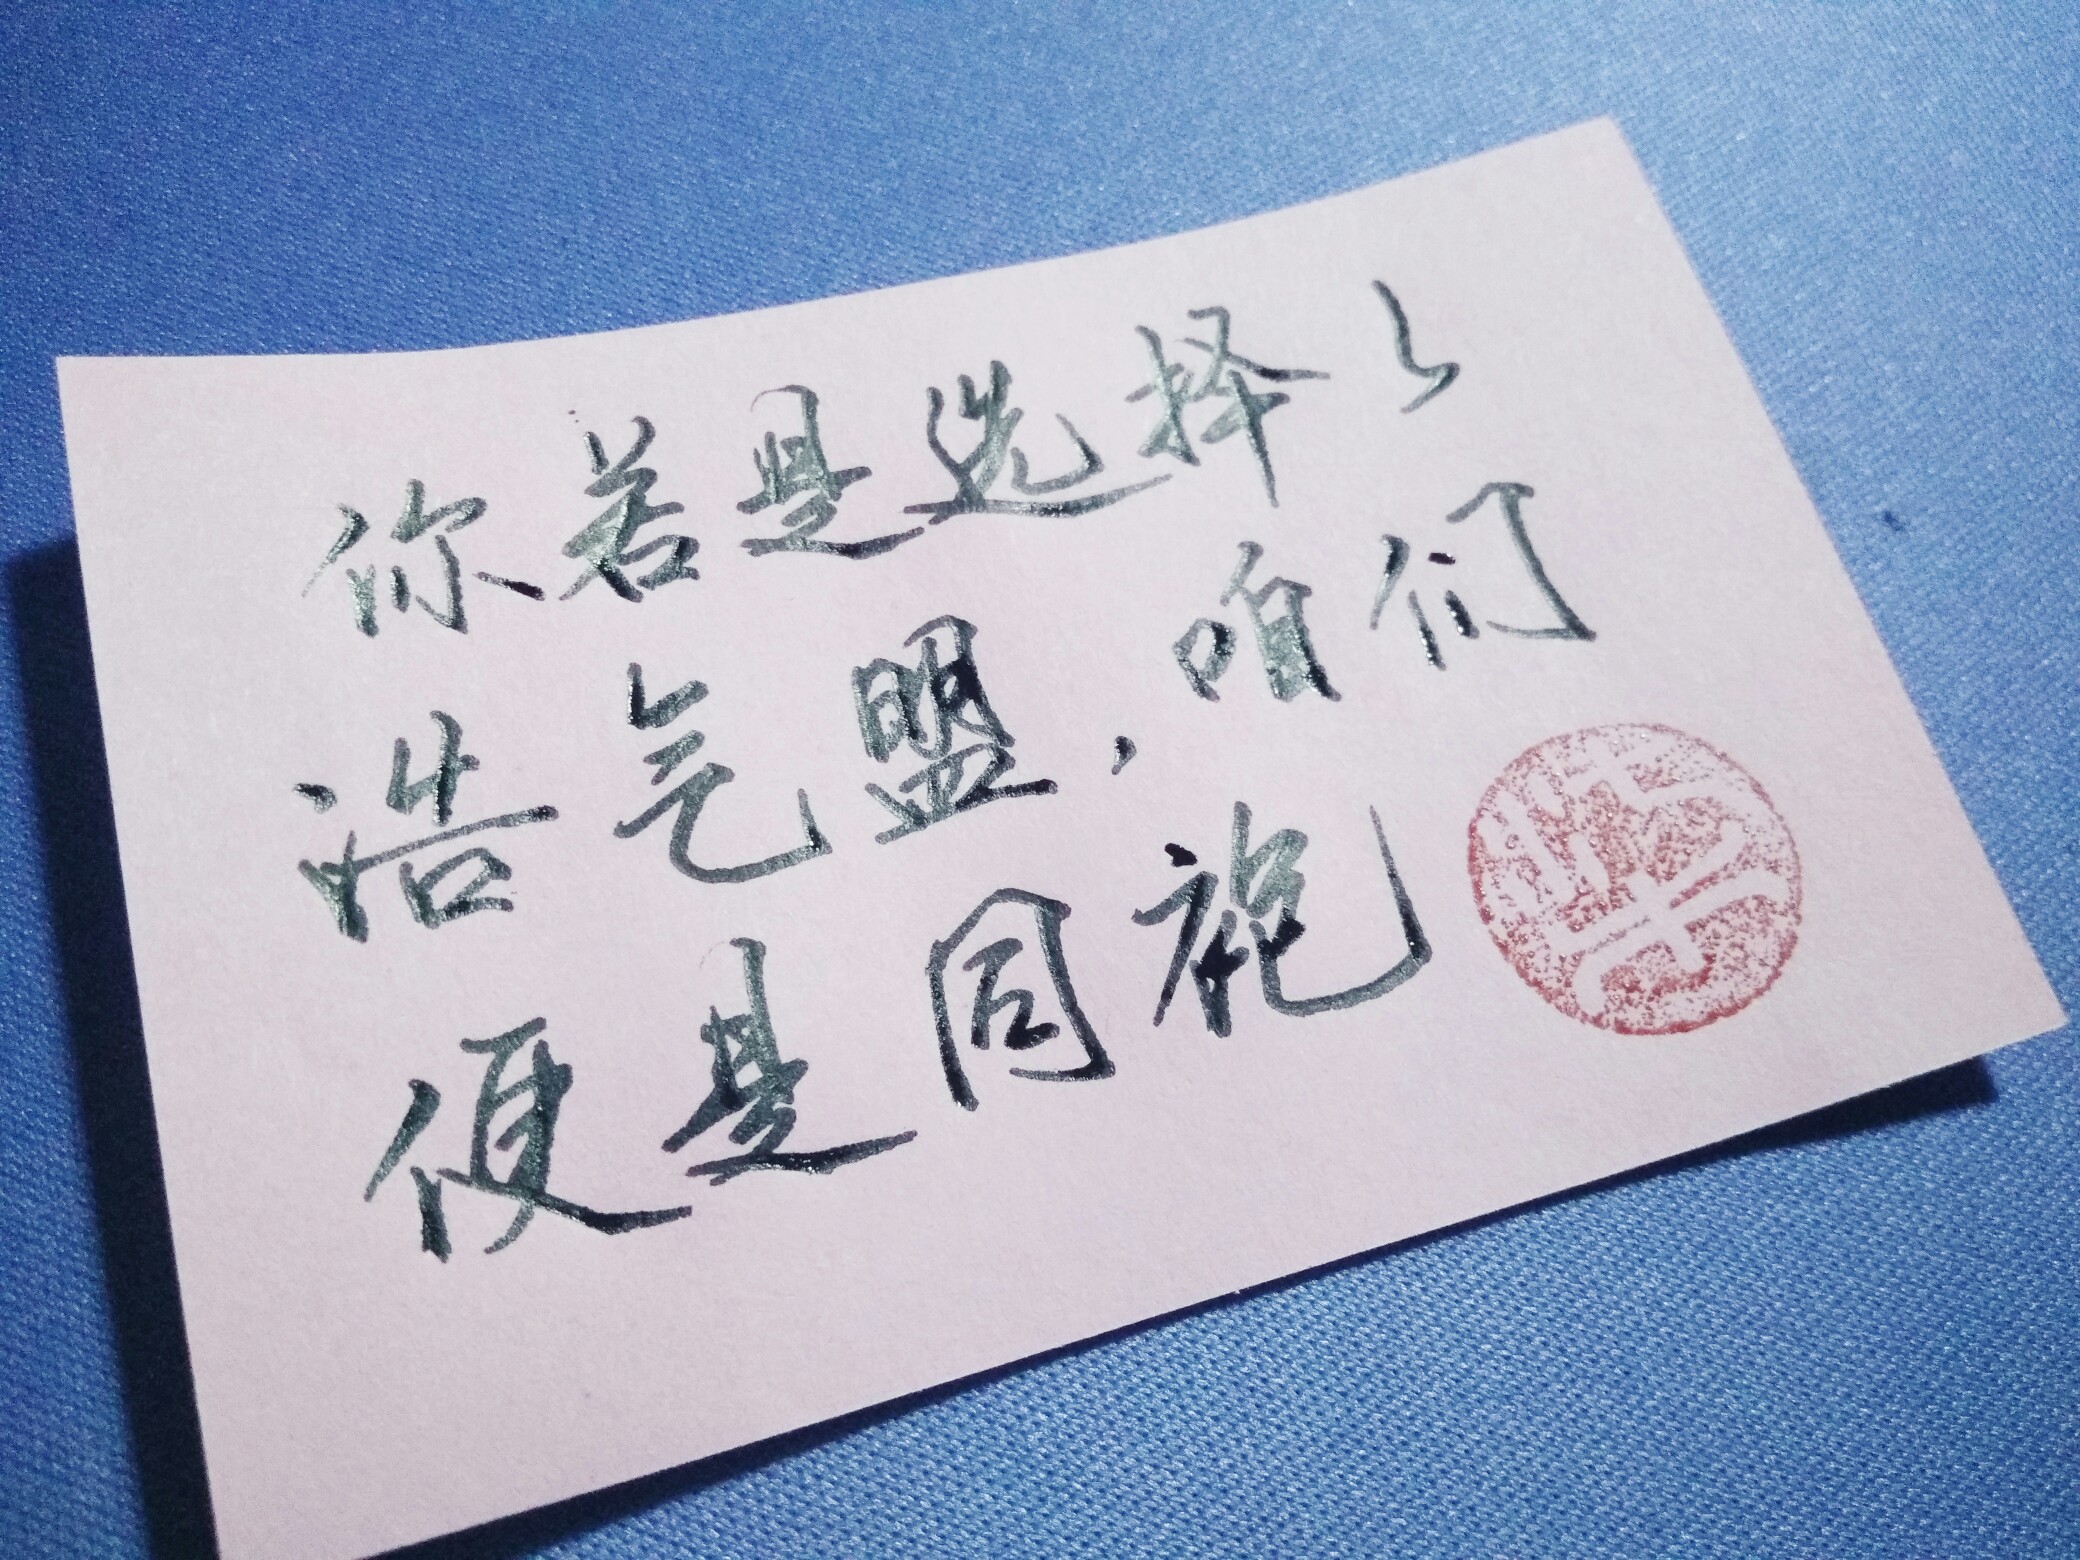 你若是选择了
浩气盟，咱们
便是同袍